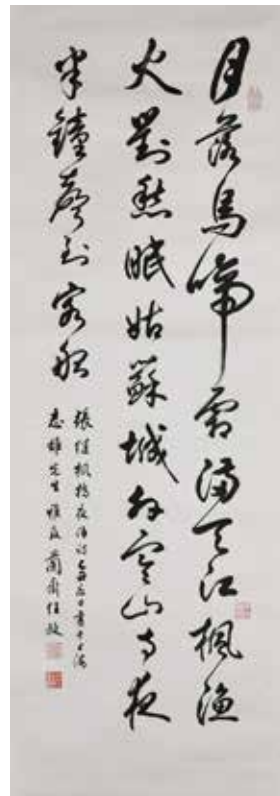 月落烏啼霜滿天江楓漁
火對愁眠姑蘇城外寒山寺夜
半鐘聲到客船
張繼楓橋夜泊詩 日書於上海
志雄先生雅 蘭齋任政